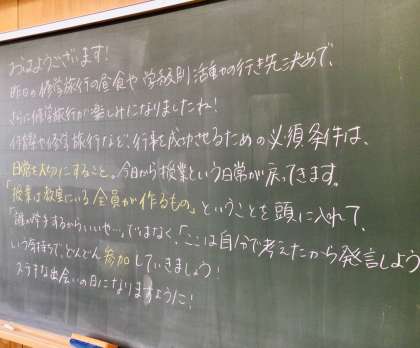 おはようございます!
昨日の修学旅行の昼食や学級別活動の行き先決めで、
さらに修学旅行が楽しみになりましたね!
体験や修学旅行など、行事を成功させるための必須条件は、
日常を大切にすること。今日から授業という日常が戻ってきます。
「授業は教室にいる全員が作るもの」ということを頭に入れて、
「誰か挙手するからいいや…」ではなく、「ここは自分で考えたから発言しよう」
という気持ちで、どんどん参加していきましょう!
ステキな出会いの日になりますように!